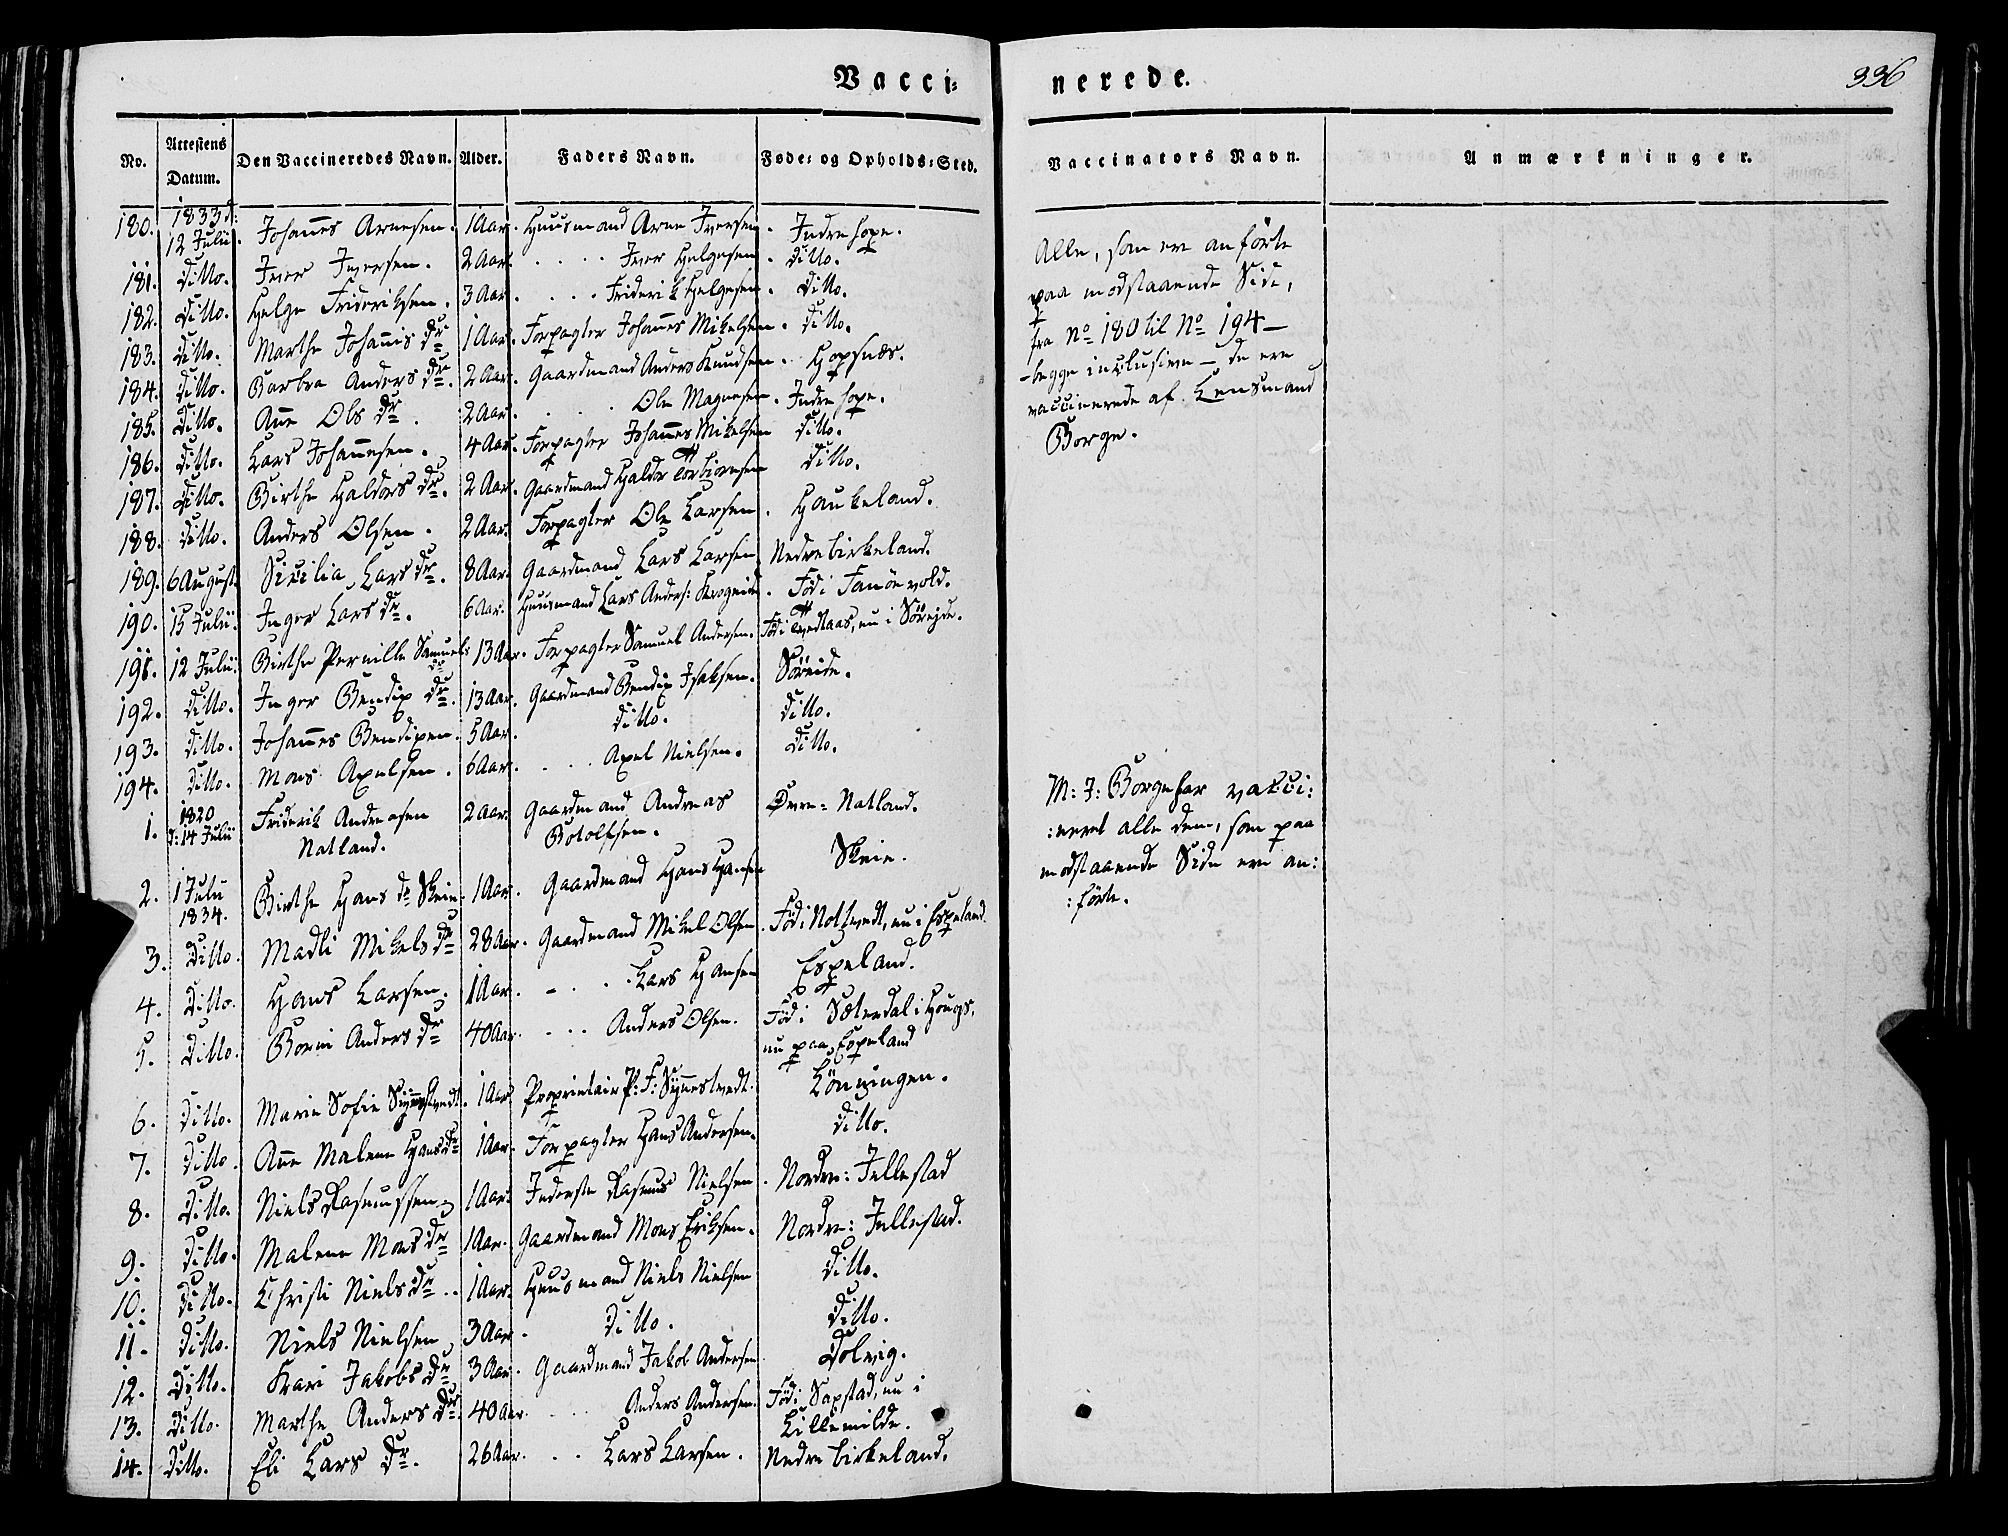 Vacci=
nerede.
336
No. Attestens Datum. Den Vaccineredes Navn. Alder. Faders Navn. Føde= og Opholds=Sted.
Vaccinators Navn. Anmærkninger.
180. 1833 d: 12 Julii. Johannes Arnesen. 1 Aar. Huusmand Arne Iversen. Indre hope.
181. Ditto. Iver Iversen. 2 Aar. . . . . Iver Helgesen. Ditto.
182. Ditto. Helge Friderichsen. 3 Aar. . . . Friderik Helgesen. Ditto.
183. Ditto. Marthe Johannis Dr. 1 Aar. Forpagter Johannes Mikelsen. Ditto.
184. Ditto. Barbra Anders Dr. 2 Aar. Gaardmand Anders Knudsen. Hopsnæs.
185. Ditto. Ane Ols Dr. 2 Aar. . . . . Ole Magnesen. Indre hope.
186. Ditto. Lars Johannesen. 4 Aar. Forpagter Johannes Mikelsen Ditto.
187. Ditto. Birthe Haldors Dr. 2 Aar. Gaardmand Haldor Torbiørnsen Ditto.
188. Ditto. Anders Olsen. 2 Aar. Forpagter Ole Larsen. Haukeland.
189. 6 August. Sicilia Lars Dr. 8 Aar. Gaardmand Lars Larsen. Nedre birkeland.
190. 15 Julii. Inger Lars Dr. 6 Aar. Huusmand Lars Anders: Krogeide. Fød i Fanøevold.
191. 12 Julii. Birthe Pernille Samuels Dr. 13 Aar. Forpagter Samuel Andersen. Fød i Tvedtaas, nu i Sørejde.
192. Ditto. Inger Bendix Dr. 13 Aar. Gaardmand Bendix Isaksen. Søreide.
193. Ditto. Johannes Bendixen. 5 Aar. Ditto. Ditto.
194. Ditto. Mons Axelsen. 6 Aar. . . . Axel Nielsen. Ditto.
1. 1820 d: 14 Julii Friderik Andreasen 2 Aar. Gaardmand Andreas Øvre= Natland.
Natland. Botolfsen.
2. 1 Julii 1834. Birthe Hans Dr Skeie. 1 Aar. Gaardmand Hans Hansen Skeie.
3. Ditto. Madli Mikels Dr 28 Aar. Gaardmand Mikel Olsen. Fød i Nottvedt, nu i Espeland.
4. Ditto. Hans Larsen. 1 Aar. . . . Lars Hansen Espeland.
5. Ditto. Borni Anders Dr 40 Aar. . . . Anders Olsen. Fød i Sæterdal i Hougs,
nu paa Espeland
6. Ditto. Marie Sofie Synnestvedt. 1 Aar. Proprietair P: F: Synnestvedt. Lønningen.
7. Ditto. Ane Malene Hans Dr 1 Aar. Forpagter Hans Andersen. Ditto.
8. Ditto. Niels Rasmussen 1 Aar. Inderste Rasmus Nielsen. Nordre: Jellestad
9. Ditto. Malene Mons Dr 1 Aar. Gaardmand Mons Eriksen. Nordre: Jellestad.
10. Ditto. Christi Niels Dr. . 1 Aar. Huusmand Niels Nielsen Ditto.
11. Ditto. Niels Nielsen 3 Aar. Ditto. Ditto.
12. Ditto. Kari Jakobs Dr 3 Aar. Gaardmand Jakob Andersen Dolvig.
13. Ditto. Marthe Anders Dr. 40 Aar. . . . Anders Andersen. Fød i Saxstad, nu i
Lillemilde.
14. Ditto. Eli Lars Dr. 26 Aar. . . Lars Larsen. Nedre birkeland.
Alle, som ere anførte
paa modstaaende Side,
fra No 180 til No 194 —
— begge inclusive — de ere
vaccinerede af Lensmand
Borge.
M: J: Borge har vacci:
:neret alle dem, som paa
modstaaende Side ere an:
:førte.